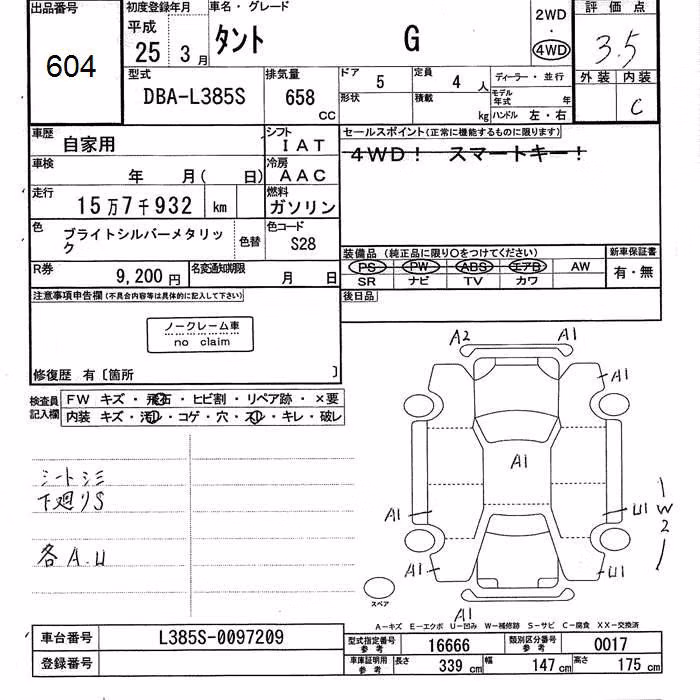 出品番号
604
初度登録年月
平成
25 3月
車名・グレード
タント G
2WD
4WD
評価点
3.5
外装 内装
C
型式
DBA-L385S
排気量
658 CC
ドア 5
定員 4 人
形状
積載 kg
ディーラー・並行
モデル年式 年
ハンドル 左・右
車歴
自家用
シフト
IAT
車検
年 月( 日)
冷房
AAC
走行
15万7千932 km
燃料
ガソリン
色
ブライトシルバーメタリッ
ク
色替
色コード
S28
R券
9,200円
名変通知期限
月 日
セールスポイント(正常に機能するものに限ります)
4WD! スマートキー!
装備品 (純正品に限り○をつけてください)
PS PW ABS エアB AW
SR ナビ TV カワ
新車保証書
有・無
後日品
注意事項申告欄(不具合内容等は具体的に記入して下さい)
ノークレーム車
no claim
修復歴 有〔箇所 〕
検査員
記入欄
FW キズ・飛石・ヒビ割・リペア跡・×要
内装 キズ・汚レ・コゲ・穴・スレ・キレ・破レ
シートシミ
下廻りS
各A.U
A2
A1
A1
A1
A1
U1
W2
A1
U1
A1
スペア
A-キズ E-エクボ U-凹み W-補修跡 S-サビ C-腐食 XX-交換済
車台番号
L385S-0097209
登録番号
型式指定番号
参考
16666
類別区分番号
参考
0017
車庫証明用
参考
長さ 339 cm
幅 147 cm
高さ 175 cm